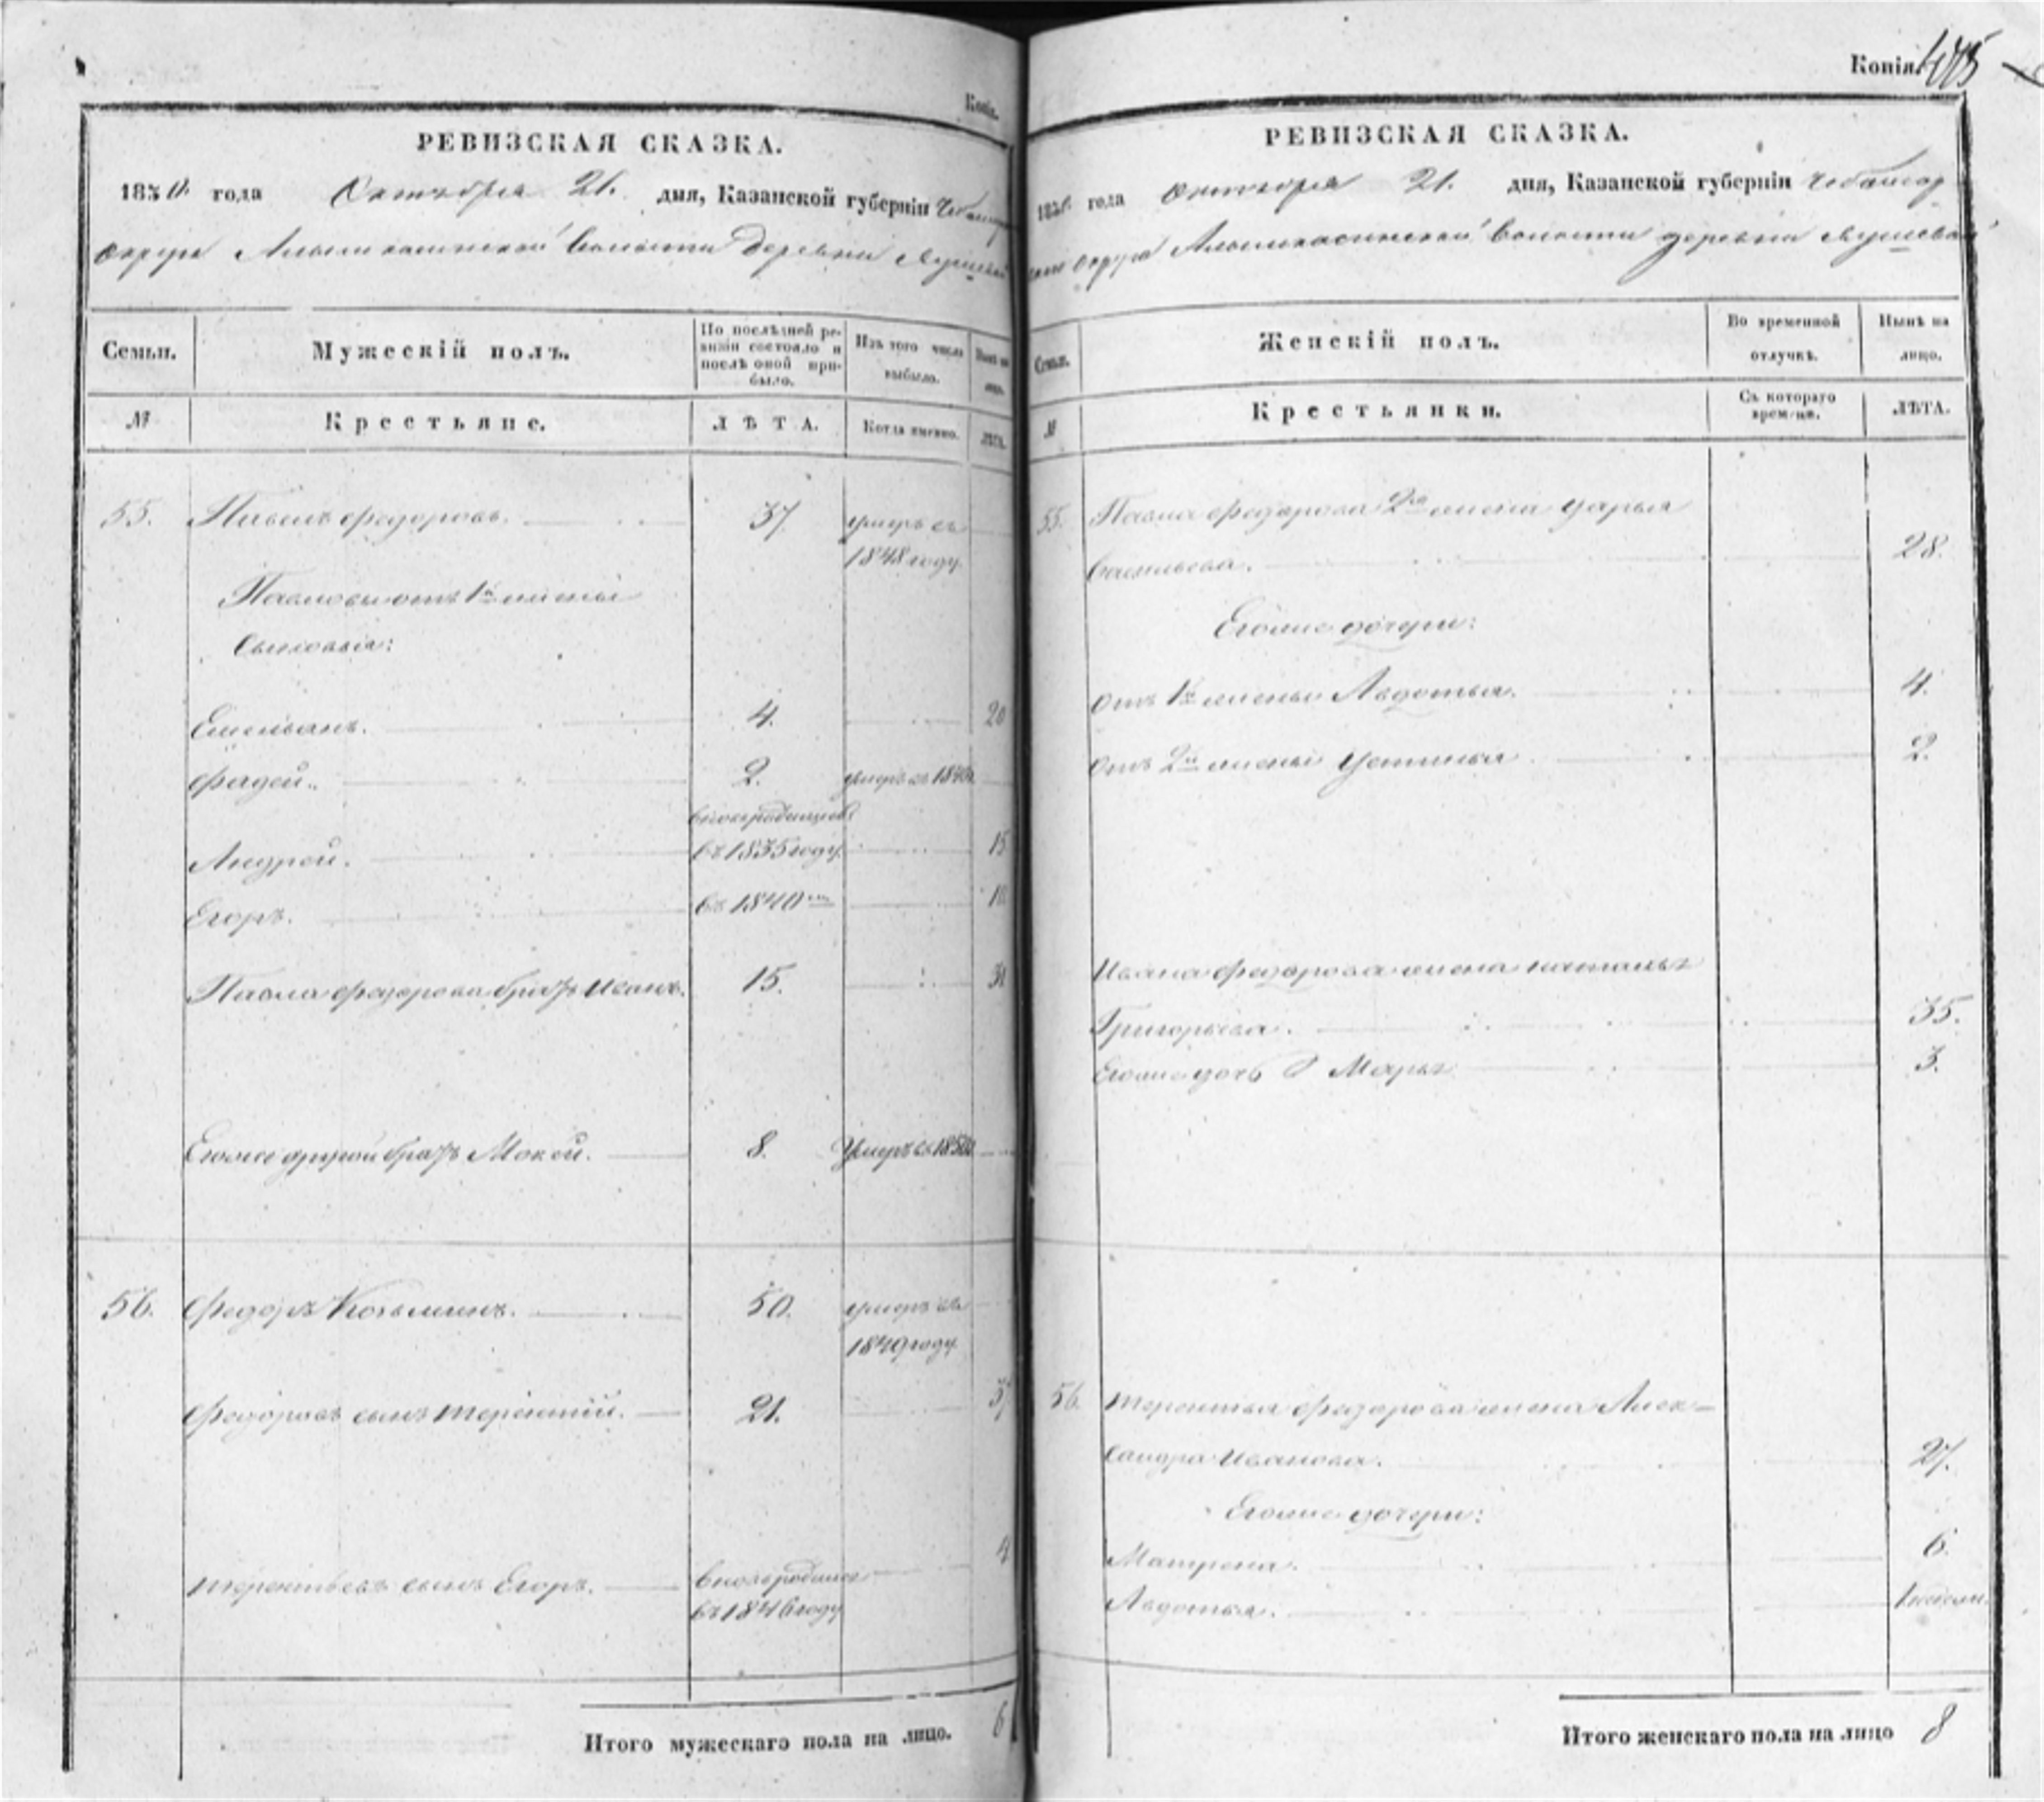 Копія.
РЕВИЗСКАЯ СКАЗКА.
1850. года Октября 21. дня, Казанской губерніи Чебоксар
округи Алымкасинской волости деревни
Семьи. Мужескій полъ. По послѣдней ревизіи состояло и послѣ оной прибыло. Изъ того числа выбыло. Нынѣ на лицо.
№ Крестьяне. ЛѢТА. Когда именно. ЛѢТА.
55. Павелъ Федоровъ. 37. умеръ въ
1848 году.
Павловы отъ 1й жены
сыновья:
Емельянъ. 4. 20
Фадей. 2. умеръ въ
вновьрожденный
Андрей. въ 1835 году. 15
Егоръ. въ 1840 10
Павла Федорова братъ Иванъ. 15. 31
Егоже другой братъ Мокей. 8. Умеръ въ 1850
56. Федоръ Козьминъ. 50. умеръ въ
1849 году
Федоровъ сынъ Терентій. 21. 37
4
Терентьевъ сынъ Егоръ. вновьрожден
въ 1846 году
Итого мужескаго пола на лицо. 6
Копія. 475
РЕВИЗСКАЯ СКАЗКА.
1850 года Октября 21. дня, Казанской губерніи Чебоксар
округа Алымкасинской волости деревни
Семьи. Женскій полъ. Во временной отлучкѣ. Нынѣ на лицо.
№ Крестьянки. Съ котораго времени. ЛѢТА.
55. Павла Федорова 2я жена Дарья
Васильева. 28.
Егоже дочери:
Отъ 1й жены Авдотья. 4.
Отъ 2й жены Устинья 2.
Ивана Федорова жена Наталья
Григорьева. 35.
Егоже дочь Марья 3.
56. Терентья Федорова жена Алек-
сандра Иванова. 27.
Егоже дочери:
Матрена. 6.
Авдотья.
Итого женскаго пола на лицо 8